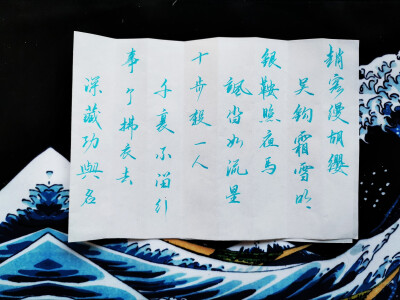 趙客缦胡纓
吴钩霜雪明
银鞍照夜馬
飒沓如流星
十步殺一人
千裏不留行
事了拂衣去
深藏功與名